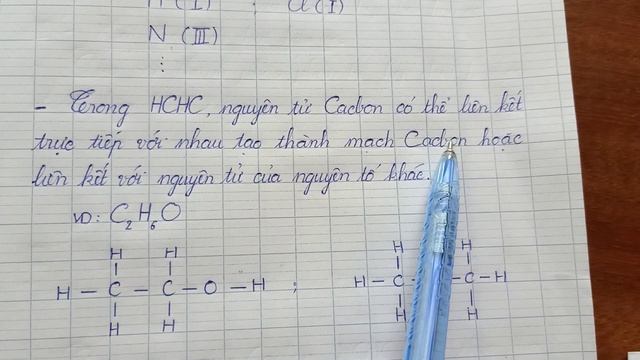 H (I) ; Cl (I)
N (III)
⋮
- Trong HCHC, nguyên tử Cacbon có thể liên kết
trực tiếp với nhau tạo thành mạch Cacbon hoặc
liên kết với nguyên tử của nguyên tố khác.
VD: C₂H₆O
H H H H
H – C – C – O – H ; H – C – C – H
H H H H